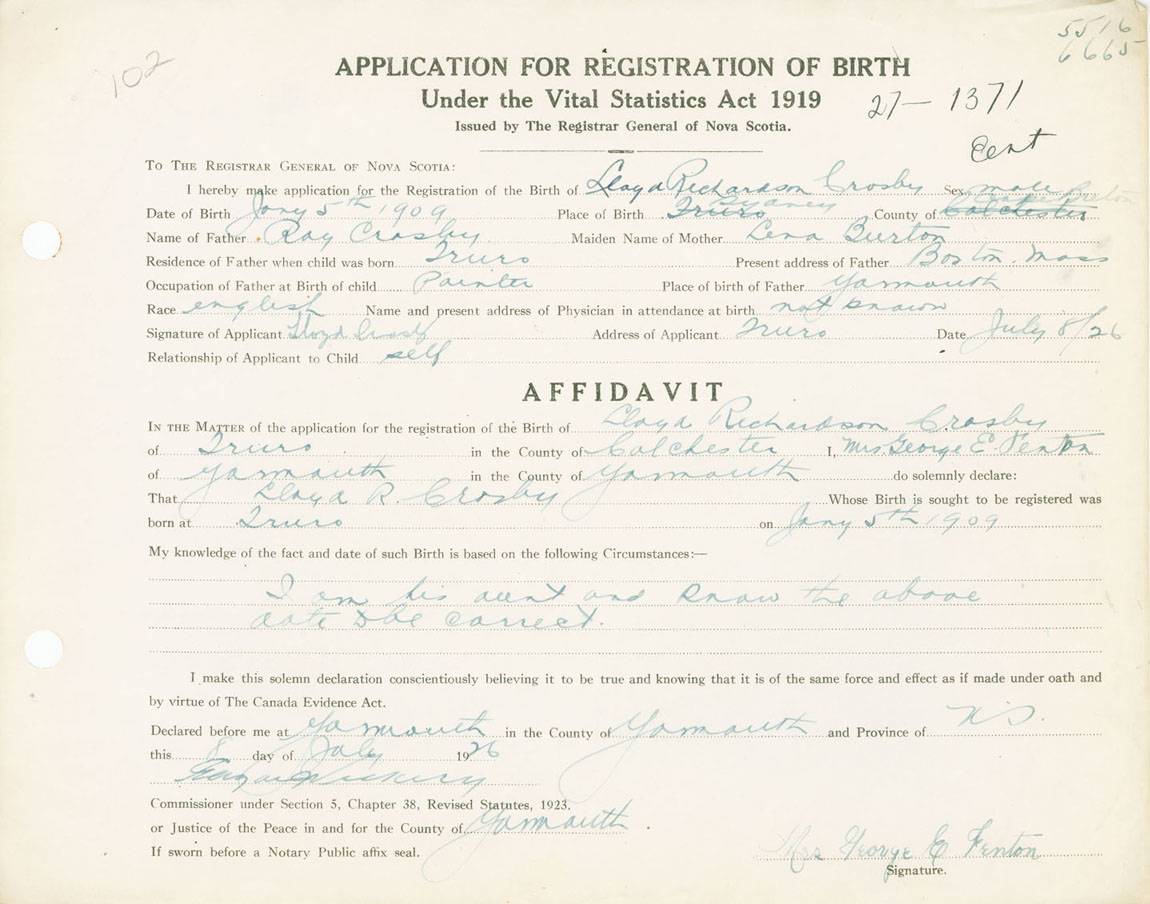 5516
6665
102
APPLICATION FOR REGISTRATION OF BIRTH
Under the Vital Statistics Act 1919
27-1371
Issued by The Registrar General of Nova Scotia.
Cent
TO THE REGISTRAR GENERAL OF NOVA SCOTIA:
I hereby make application for the Registration of the Birth of Lloyd Richardson Crosby Sex male
Sydney Cape Breton
Date of Birth Jany 5th 1909 Place of Birth Truro County of Colchester
Name of Father Ray Crosby Maiden Name of Mother Lena Burton
Residence of Father when child was born Truro Present address of Father Boston. Mass
Occupation of Father at Birth of child Painter Place of birth of Father Yarmouth
Race english Name and present address of Physician in attendance at birth not known
Signature of Applicant Lloyd Crosby Address of Applicant Truro Date July 8/26
Relationship of Applicant to Child self
AFFIDAVIT
IN THE MATTER of the application for the registration of the Birth of Lloyd Richardson Crosby
of Truro in the County of Colchester I, Mrs. George E. Fenton
of Yarmouth in the County of Yarmouth do solemnly declare:
That Lloyd R. Crosby Whose Birth is sought to be registered was
born at Truro on Jany 5th 1909
My knowledge of the fact and date of such Birth is based on the following Circumstances:—
I am his aunt and know the above
date to be correct.
I make this solemn declaration conscientiously believing it to be true and knowing that it is of the same force and effect as if made under oath and
by virtue of The Canada Evidence Act.
Declared before me at Yarmouth in the County of Yarmouth and Province of N.S.
this 8 day of July 1926
Commissioner under Section 5, Chapter 38, Revised Statutes, 1923.
or Justice of the Peace in and for the County of Yarmouth
If sworn before a Notary Public affix seal.
Mrs George E Fenton
Signature.